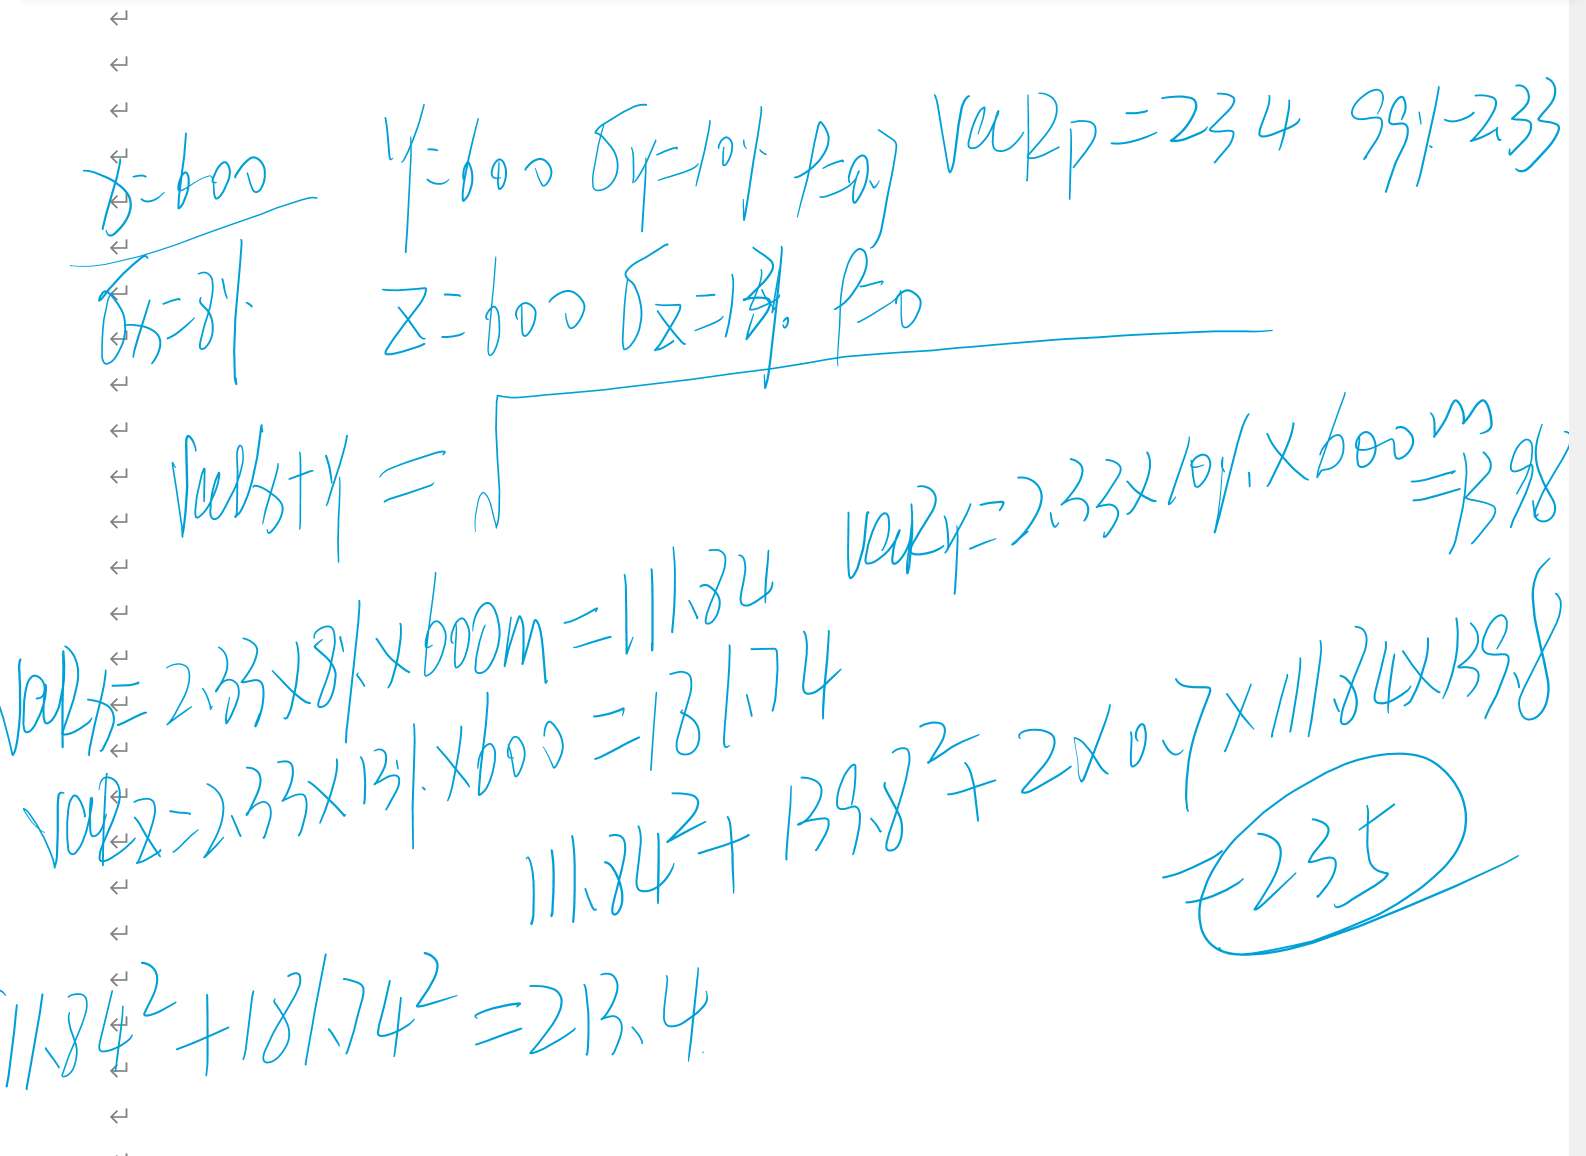 x=600 Y=600 σy=10% ρ=0.7 VaRp=234 99%-2.33
σx=8% Z=600 σz=13% ρ=0
VaRx+y = √
VaRy=2.33×10%×600m
=139.8
VaRx=2.33×8%×600m=111.84
VaRz=2.33×13%×600=181.74
111.84²+139.8²+2×0.7×111.84×139.8
=235
11.84²+181.74²=213.4